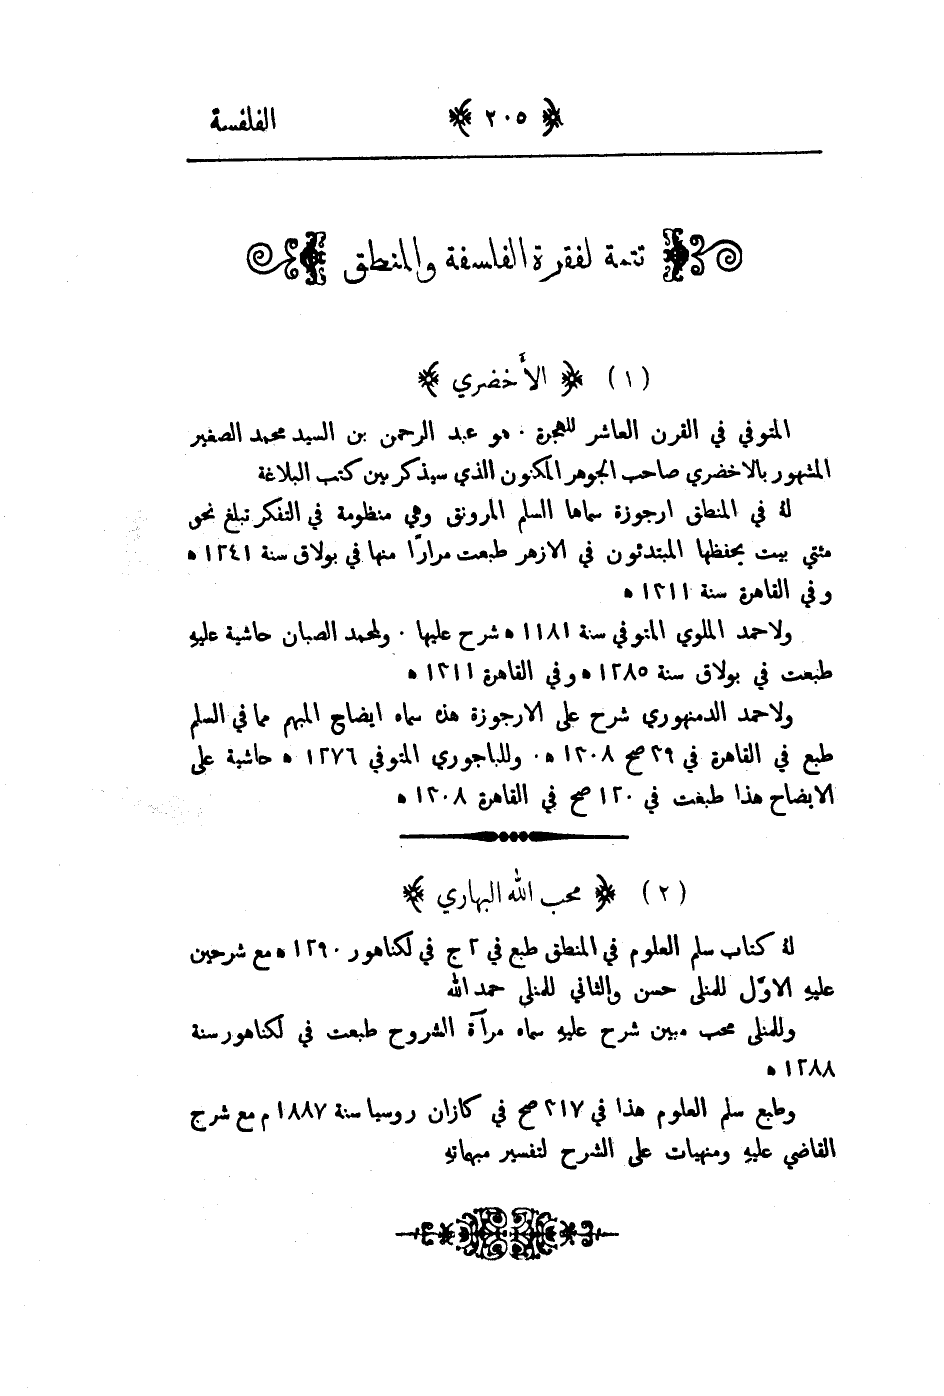 ﴿ ٢٠٥ ﴾ الفلفسة
تتمة لفقرة الفلسفة والمنطق
(١) ﴿ الأخضري ﴾
المتوفي في القرن العاشر للهجرة · هو عبد الرحمن بن السيد محمد الصغير
المشهور بالاخضري صاحب الجوهر المكنون الذي سيذكر بين كتب البلاغة
لهُ في المنطق ارجوزة سماها السلم المرونق وهي منظومة في التفكر تبلغ نحو
مئتي بيت يحفظها المبتدئون في الازهر طبعت مرارًا منها في بولاق سنة ١٢٤١ ه
وفي القاهرة سنة ١٣١١ ه
ولاحمد الملوي المتوفي سنة ١١٨١ ه شرح عليها · ولمحمد الصبان حاشية عليهِ
طبعت في بولاق سنة ١٢٨٥ ه وفي القاهرة ١٣١١ ه
ولاحمد الدمنهوري شرح على الارجوزة هذه سماه ايضاح المبهم مما في السلم
طبع في القاهرة في ٣٩ صح ١٣٠٨ ه · وللباجوري المتوفي ١٢٧٦ ه حاشية على
الايضاح هذا طبغت في ١٢٠ صح في القاهرة ١٣٠٨ ه
(٢) ﴿ محب الله البهاري ﴾
لهُ كتاب سلم العلوم في المنطق طبع في ٢ ج في لكناهور ١٢٩٠ ه مع شرحين
عليهِ الاوّل للمنلى حسن والثاني للمنلى حمد الله
وللمنلى محب مبين شرح عليهِ سماه مرآة الشروح طبعت في لكناهور سنة
١٢٨٨ ه
وطبع سلم العلوم هذا في ٢١٧ صح في كازان روسيا سنة ١٨٨٧ م مع شرح
القاضي عليهِ ومنهيات على الشرح لتفسير مبهماتهِ